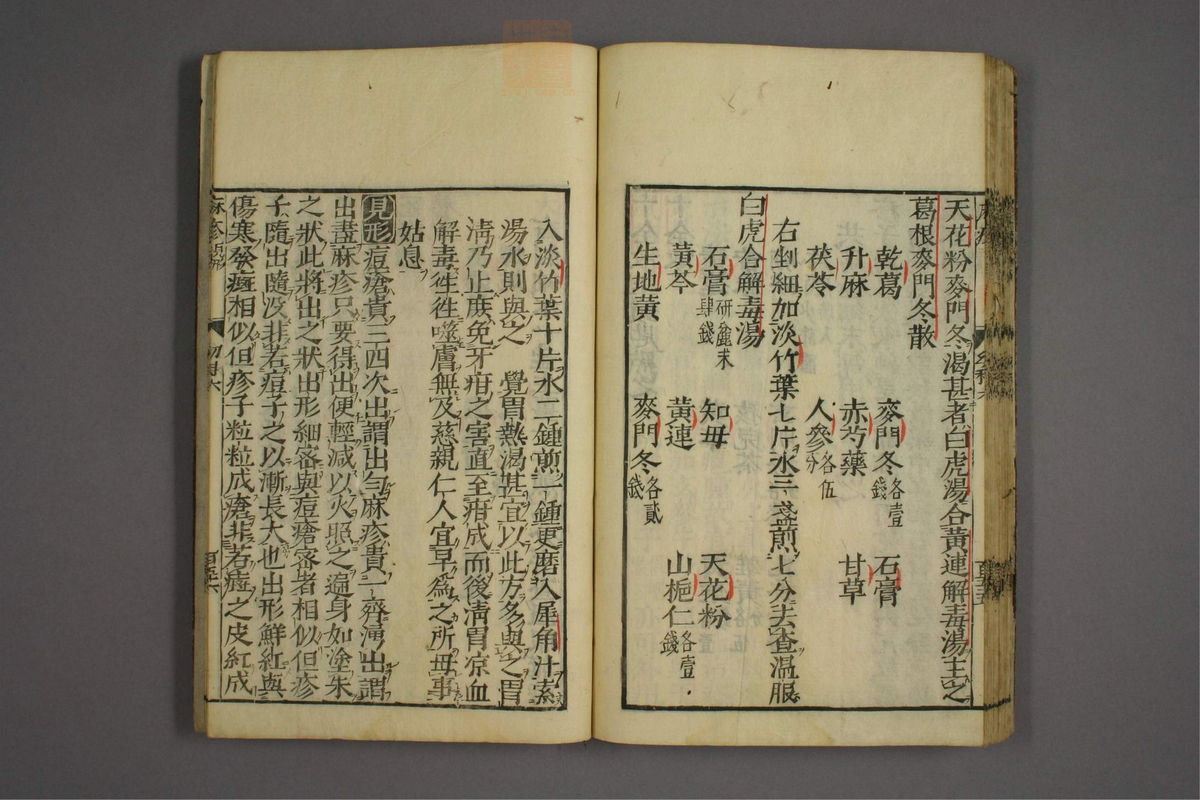 天花粉麥門冬渴甚者白虎湯合黃連解毒湯主之
葛根麥門冬散
乾葛 麥門冬各壹錢 石膏
升麻 赤芍藥 甘草
茯苓 人參各伍分
右剉細加淡竹葉七片水三盞煎七分去查溫服
白虎合解毒湯
石膏研麄末肆錢 知毋 天花粉
黃芩 黃連 山梔仁各壹錢
生地黃 麥門冬各貳錢
入淡竹葉十片水二鍾煎一鍾更磨入犀角汁蓁
湯水則與 覺胃熱渴甚宜以此方多與之胃
淸乃止庻免牙疳之害直至疳成而後淸胃凉血
解毒徃徃噬膚無及慈親仁人宜早爲之所毋事
姑息
見形 痘瘡貴三四次出謂出勻麻疹貴一齊湧出謂
出盡麻疹只要得出便輕減以火照之遍身如塗朱
之狀此將出之狀出形細密與痘瘡密者相似但疹
子隨出隨沒非若痘子之以漸長大也出形鮮紅與
傷寒發癍相似但疹子粒粒成瘡非若癍之皮紅成
麻疹